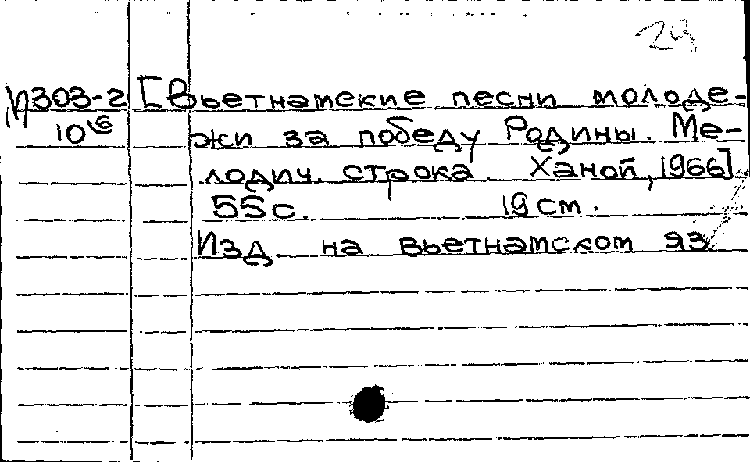 29
И303-2 [Вьетнамские песни молоде-
10 жи за победу Родины. Ме-
лодич. строка. Ханой, 1966].
55 с. 19 см.
Изд. на вьетнамском яз.